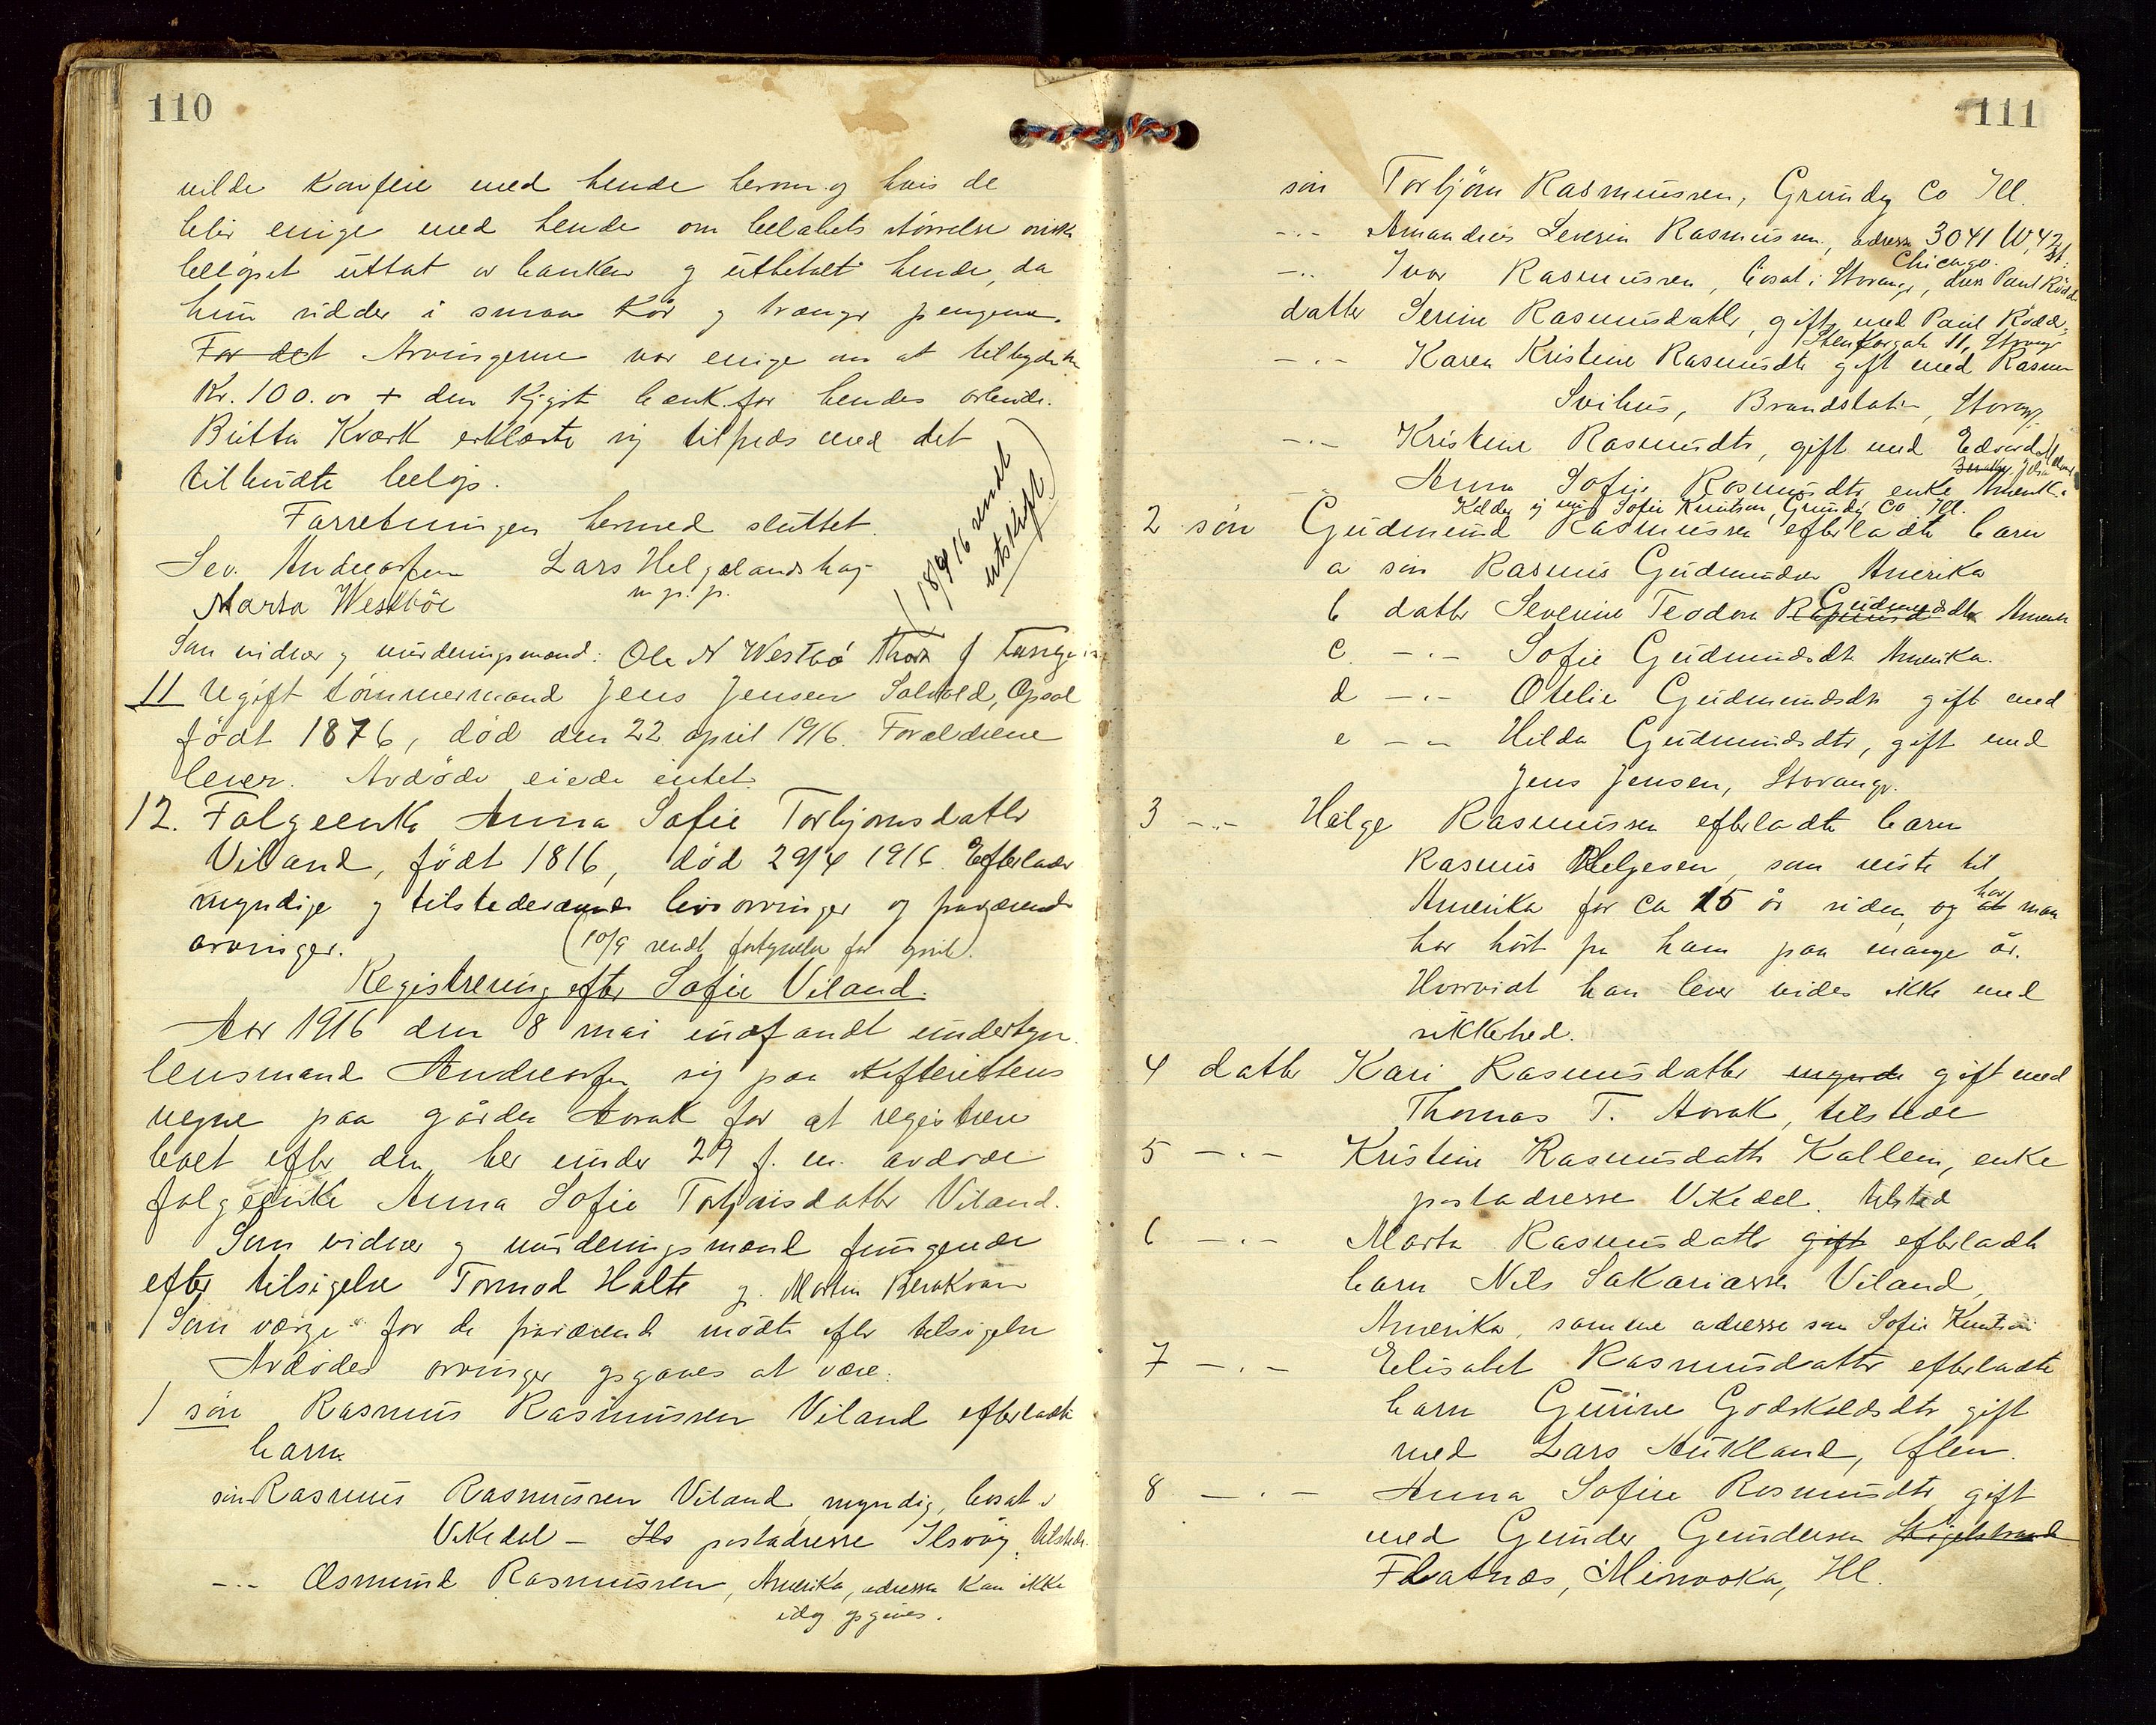 110
vilde konferere med hende herom og hvis de
blir enige med hende om beløbets størrelse ønsk
beløpet uttat av banken og utbetalt hende, da
hun sidder i smaa kår og trænger pengene.
For det Arvingerne var enige om at tilbyde hn
Kr. 100.00 + den Kjøpt bænk for hendes arbeide.
Britta Kvark erklærte sig tilfreds med det
tilbudte beløp.
Forretningen hermed sluttet.
(18/9 16 sendt
utskrift)
Sev. Andreassen Lars Helgelandshag
m. p. p.
Marta Westbøe
Som vidner og vurderingsmænd: Ole N Westbø Thor J Tange
11 Ugift tømmermand Jens Jensen Solvold, Opsal
født 1876, død den 22 april 1916. Forældrene
lever. Avdøde eiede intet.
12. Folgeenke Anna Sofie Torbjørnsdatter
Viland, født 1816, død 29/4 1916. Efterlader
myndige og tilstedeværende livsarvinger og fraværende
arvinger. (10/9 sendt fortegnelse for gjeld).
Registrering efter Sofie Viland.
Aar 1916 den 8 mai indfandt undertegn
lensmand Andreassen sig paa skifterettens
vegne paa gården Aorak for at registrere
boet efter den her under 29 f. m. avdøde
folgeenke Anna Sofie Torbjørnsdatter Viland.
Som vidner og vurderingsmænd fungerede
efter tilsigelse Tormod Halte og Morten Berakvam
Som værge for de fraværende mødte efter tilsigelse
Avdødes arvinger opgaves at være:
1 søn Rasmus Rasmussen Viland efterladte
barn
søn Rasmus Rasmussen Viland, myndig, bosat i
Vikedal - Ils postadresse Ilsvåg, tilstede.
-"- Osmund Rasmussen, Amerika, adresse kan ikke
idag opgives.
111
søn Torbjørn Rasmussen, Grundy Co Ill.
-"- Amandeus Severin Rasmussen, adresse 3041 W. 42 st.
Chicago.
-"- Ivar Rasmussen, bosat i Stavanger, adress Paul Rødde
datter Serine Rasmusdatter, gift med Paul Rødde,
Stenkargate 11, Stvgr
-"- Karen Kristine Rasmusdtr gift med Rasmus
Svihus, Brandstation, Stavanger
-"- Kristine Rasmusdtr, gift med Edvard
Jelsa
-"- Anna Sofie Rasmusdtr enke Amerik.
Kalder sig nu Sofie Knutson, Grundy Co. Ill.
2 søn Gudmund Rasmussen efterladte barn
a søn Rasmus Gudmundsen Amerika
b datter Severine Teodora Rasmusd Gudmundsdtr Amerik
c. -"- Sofie Gudmundsdtr Amerika.
d -"- Otelie Gudmundsdtr gift med
e -"- Hilda Gudmundsdtr, gift med
Jens Jensen, Stavanger.
3 -"- Helge Rasmussen efterladte barn
Rasmus Helgesen, som reiste til
Amerika for ca 15 år siden, og at har man
har hørt fra ham paa mange år.
Hvorvidt han lever vides ikke med
sikkerhed.
4 datter Kari Rasmusdatter myndi gift med
Thomas T. Aorak, tilstede
5 -"- Kristine Rasmusdatter Kallem, enke
postadresse Vikedal. tilsted
6 -"- Marta Rasmusdatter gift efterladte
barn Nils Sakariassen Viland,
Amerika, samme adresse som Sofie Knutson
7 -"- Elisabet Rasmusdatter efterladte
barn Gurine Godskalksdtr gift
med Lars Aukland, Ølen.
8 -"- Anna Sofie Rasmusdtr gift
med Gunder Gundersen Skigelstrand
Flatnæs, Minooka, Ill.